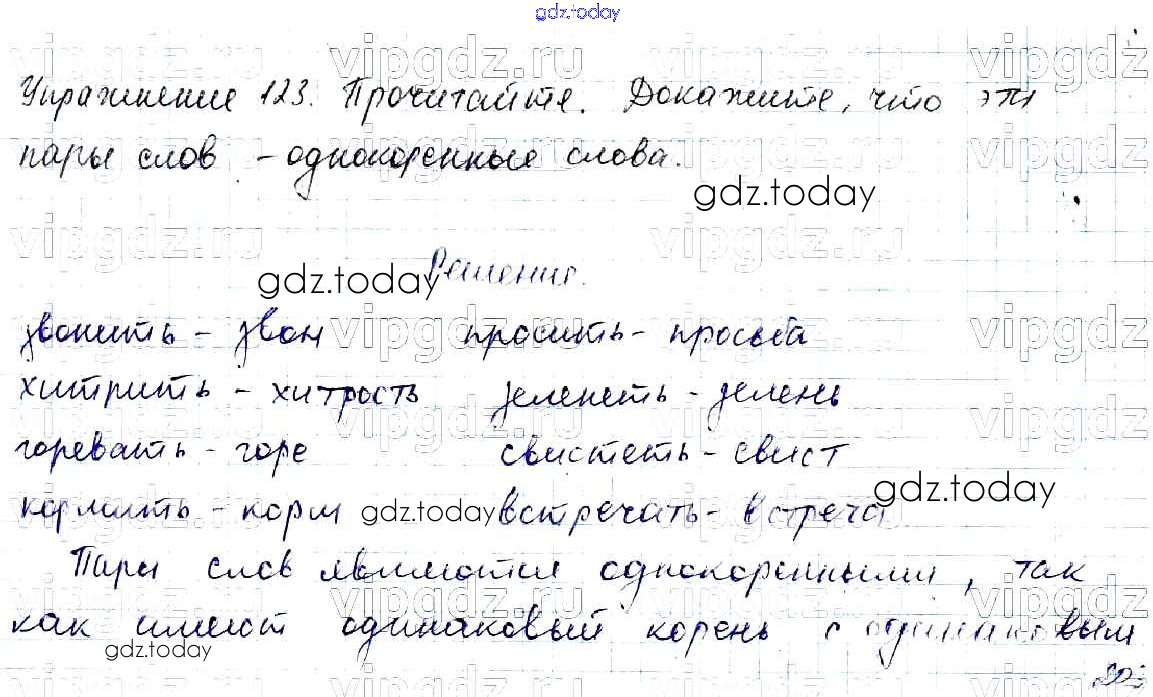 gdz.today
vipgdz.ru vipgdz.ru vipgdz.ru vipgdz.ru
Упражнение 123. Прочитайте. Докажите, что эти
пары слов - однокоренные слова.
gdz.today
Решение.
gdz.today
звонить - звон просить - просьба
хитрить - хитрость зеленеть - зелень
горевать - горе свистеть - свист
gdz.today
кормить - корм gdz.today встречать - встреча
Пары слов являются однокоренными, так
как имеют одинаковый корень с одинаковым
gdz.today